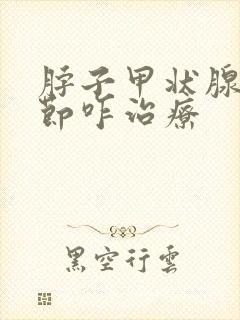 脖子甲状腺
節咋治療
黑空行雲